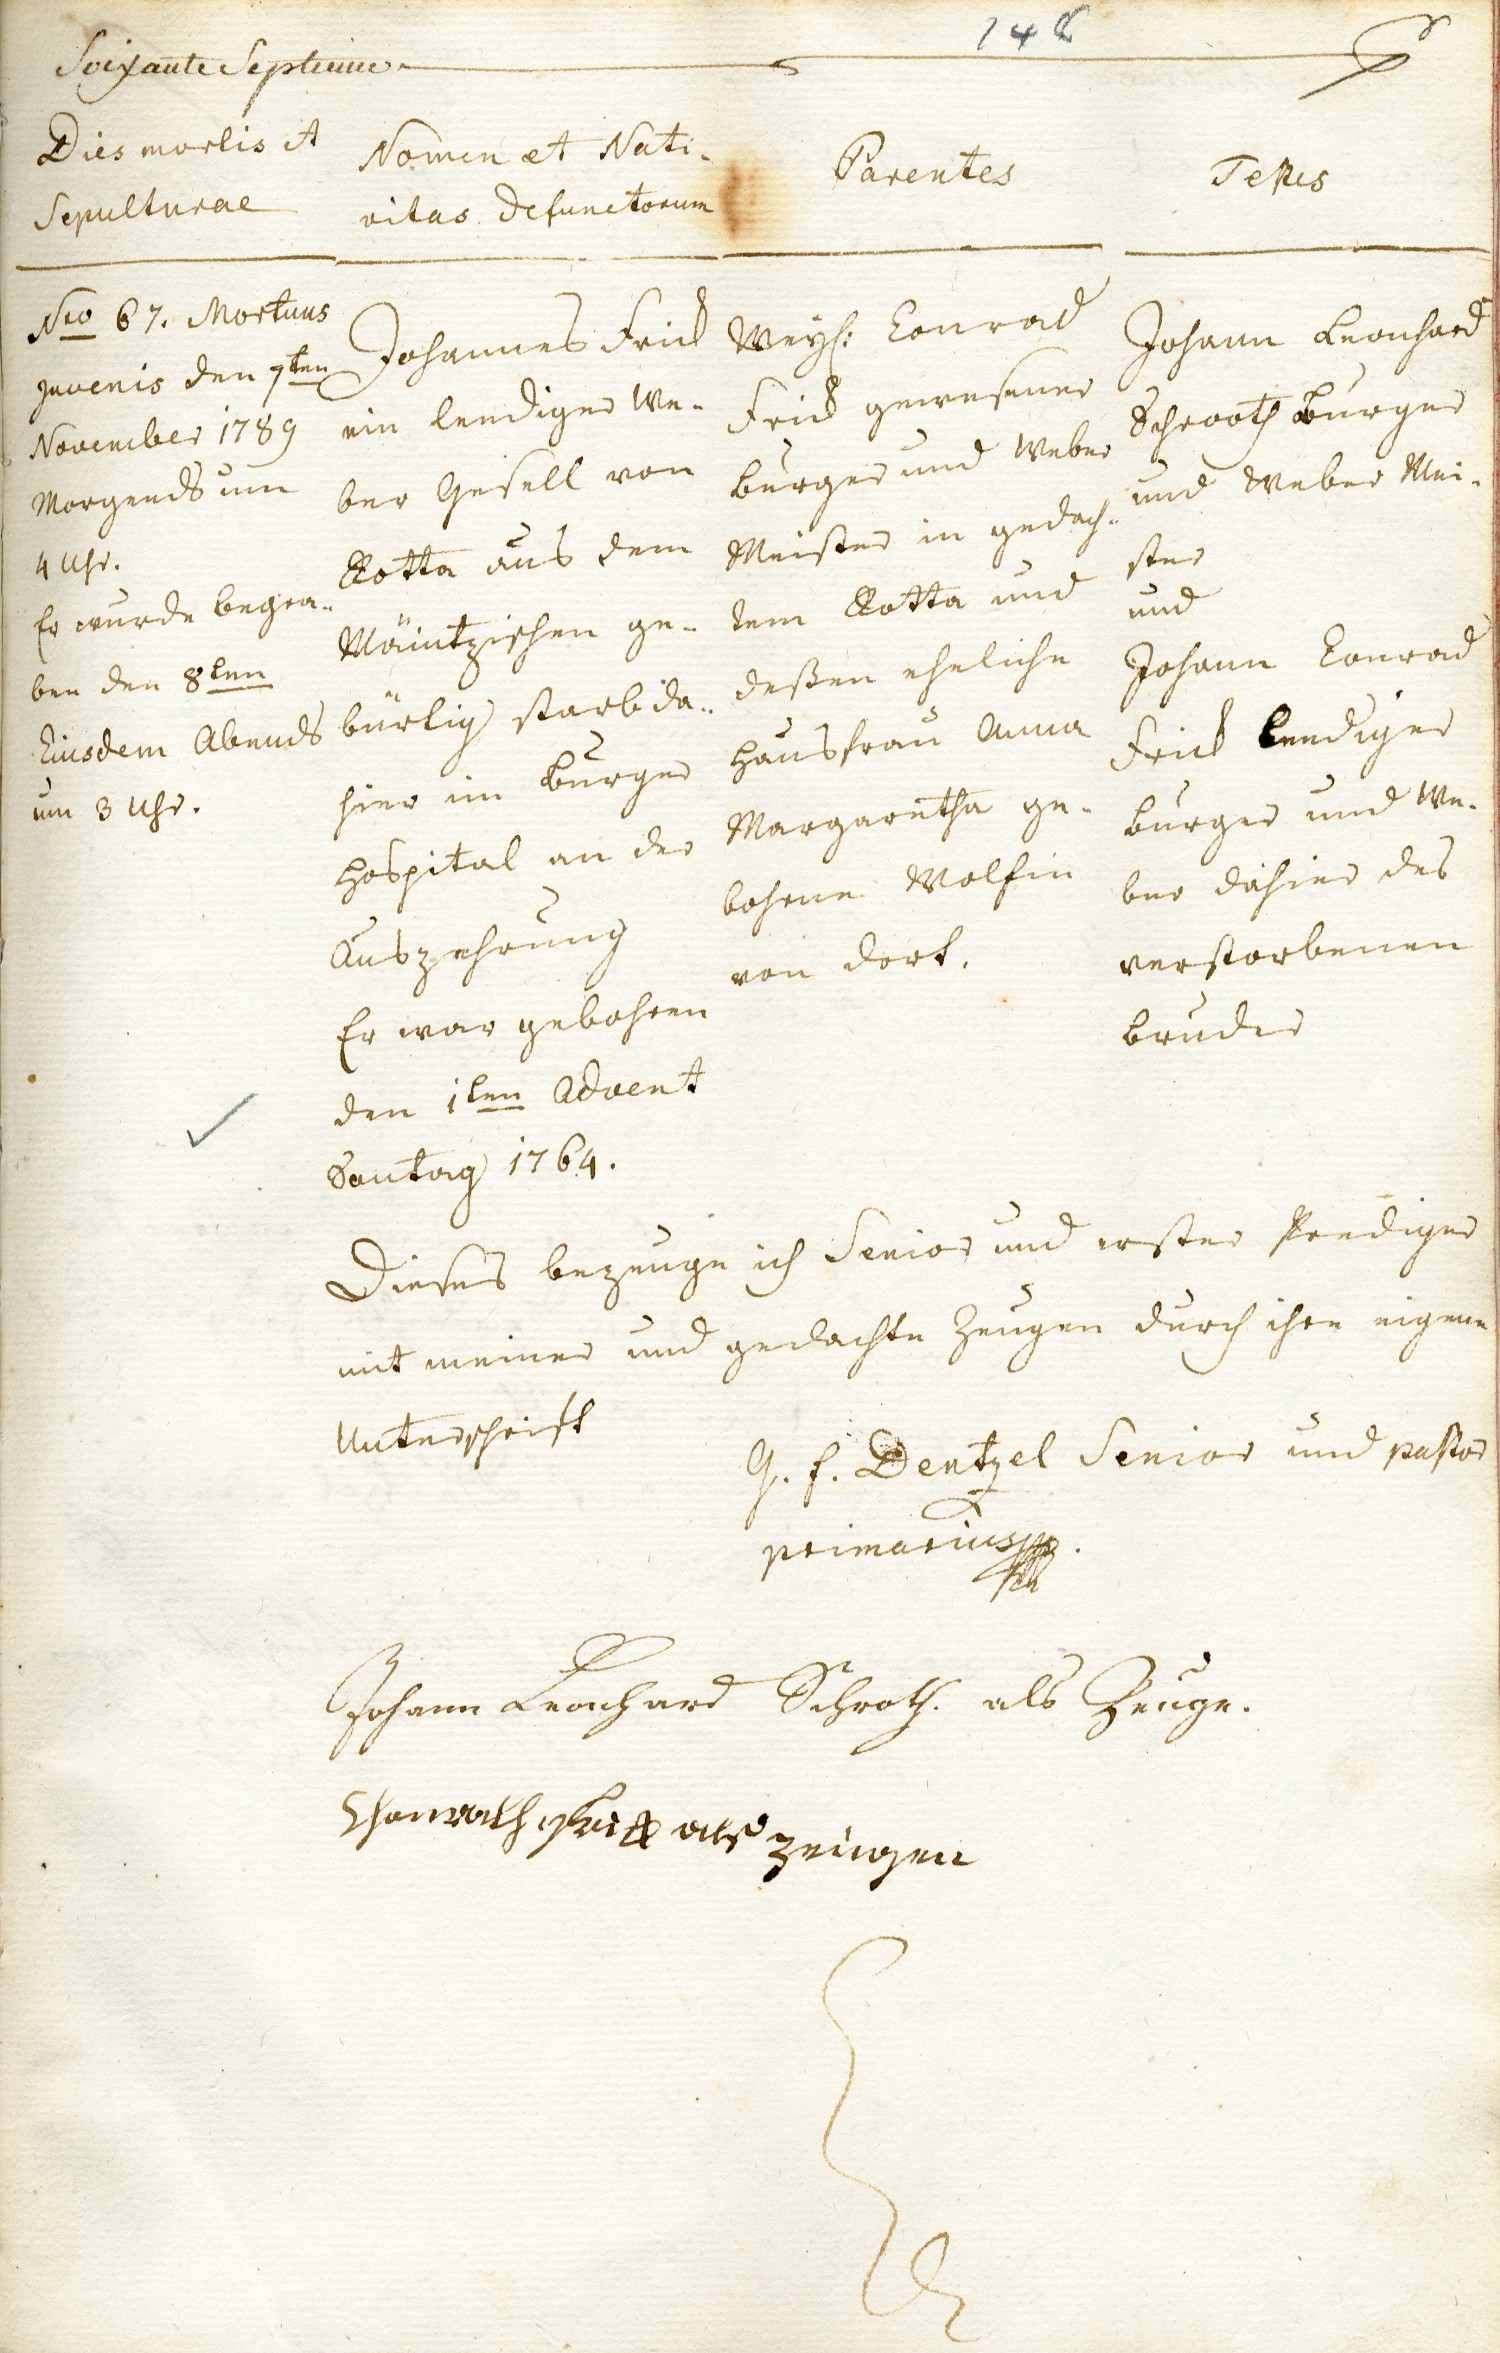 148
Soixante Septieme
Dies mortis et
Sepulturae
Nomen et Nati-
vitas Defunctorum
Parentes
Testes
Nro 67. Mortuus
juvenis den 7ten
November 1789
Morgends um
4 Uhr.
Er wurde begra-
ben den 8ten
Eiusdem Abends
um 3 Uhr.
Johannes Frick
ein lendiger We-
ber Gesell von
Rotta aus dem
Mäintzischen ge-
bürtig starb da-
hier im Burger
Hospital an der
Auszehrung
Er war gebohren
den 1ten Advent
Sontag 1764.
Weyl: Conrad
Frick gewesener
burger und Weber
Meister in gedach-
tem Rotta und
deßen eheliche
Hausfrau Anna
Margaretha ge-
bohrne Wolfin
von dort.
Johann Leonhard
Schrooth Burger
und Weber Mei-
ster
und
Johann Conrad
Frick lendiger
burger und We-
ber dahier des
verstorbenen
bruder
Dieses bezeuge ich Senior und erster Prediger
mit meiner und gedachte Zeugen durch ihre eigene
Unterschrift
G. f. Dentzel Senior und pastor
primarius
Johann Leonhard Schroth. als Zeuge.
Chonrath Frick als zeugen